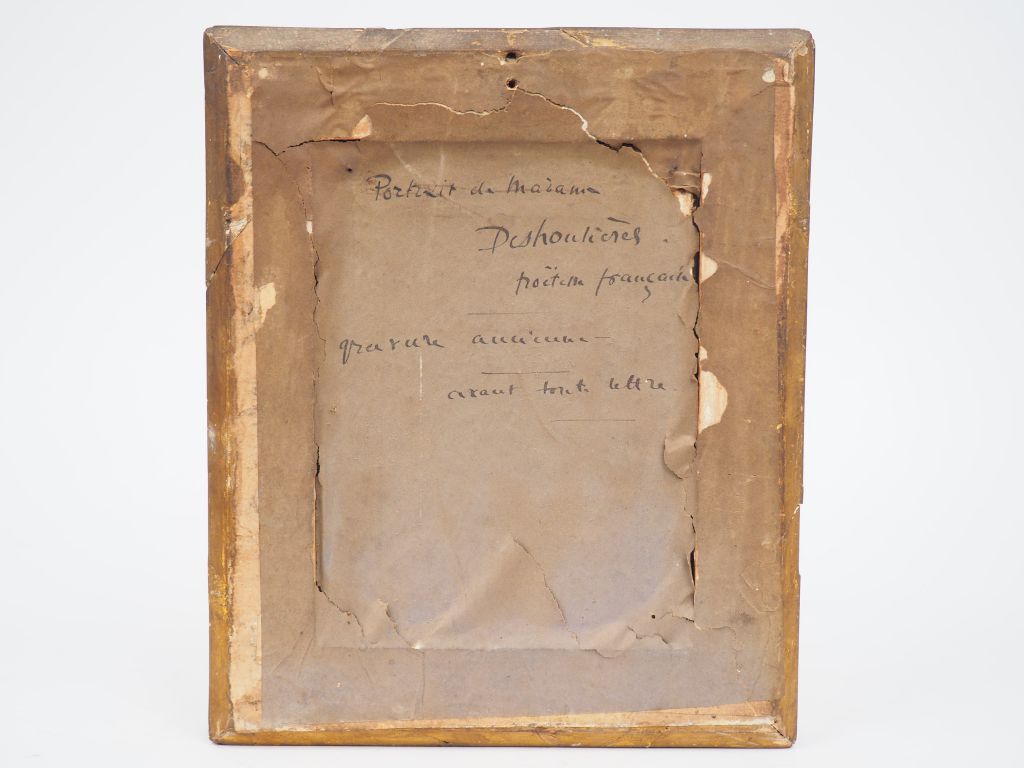 Portrait de Madame
Deshoulières.
poëtesse française
gravure ancienne
avant toute lettre.